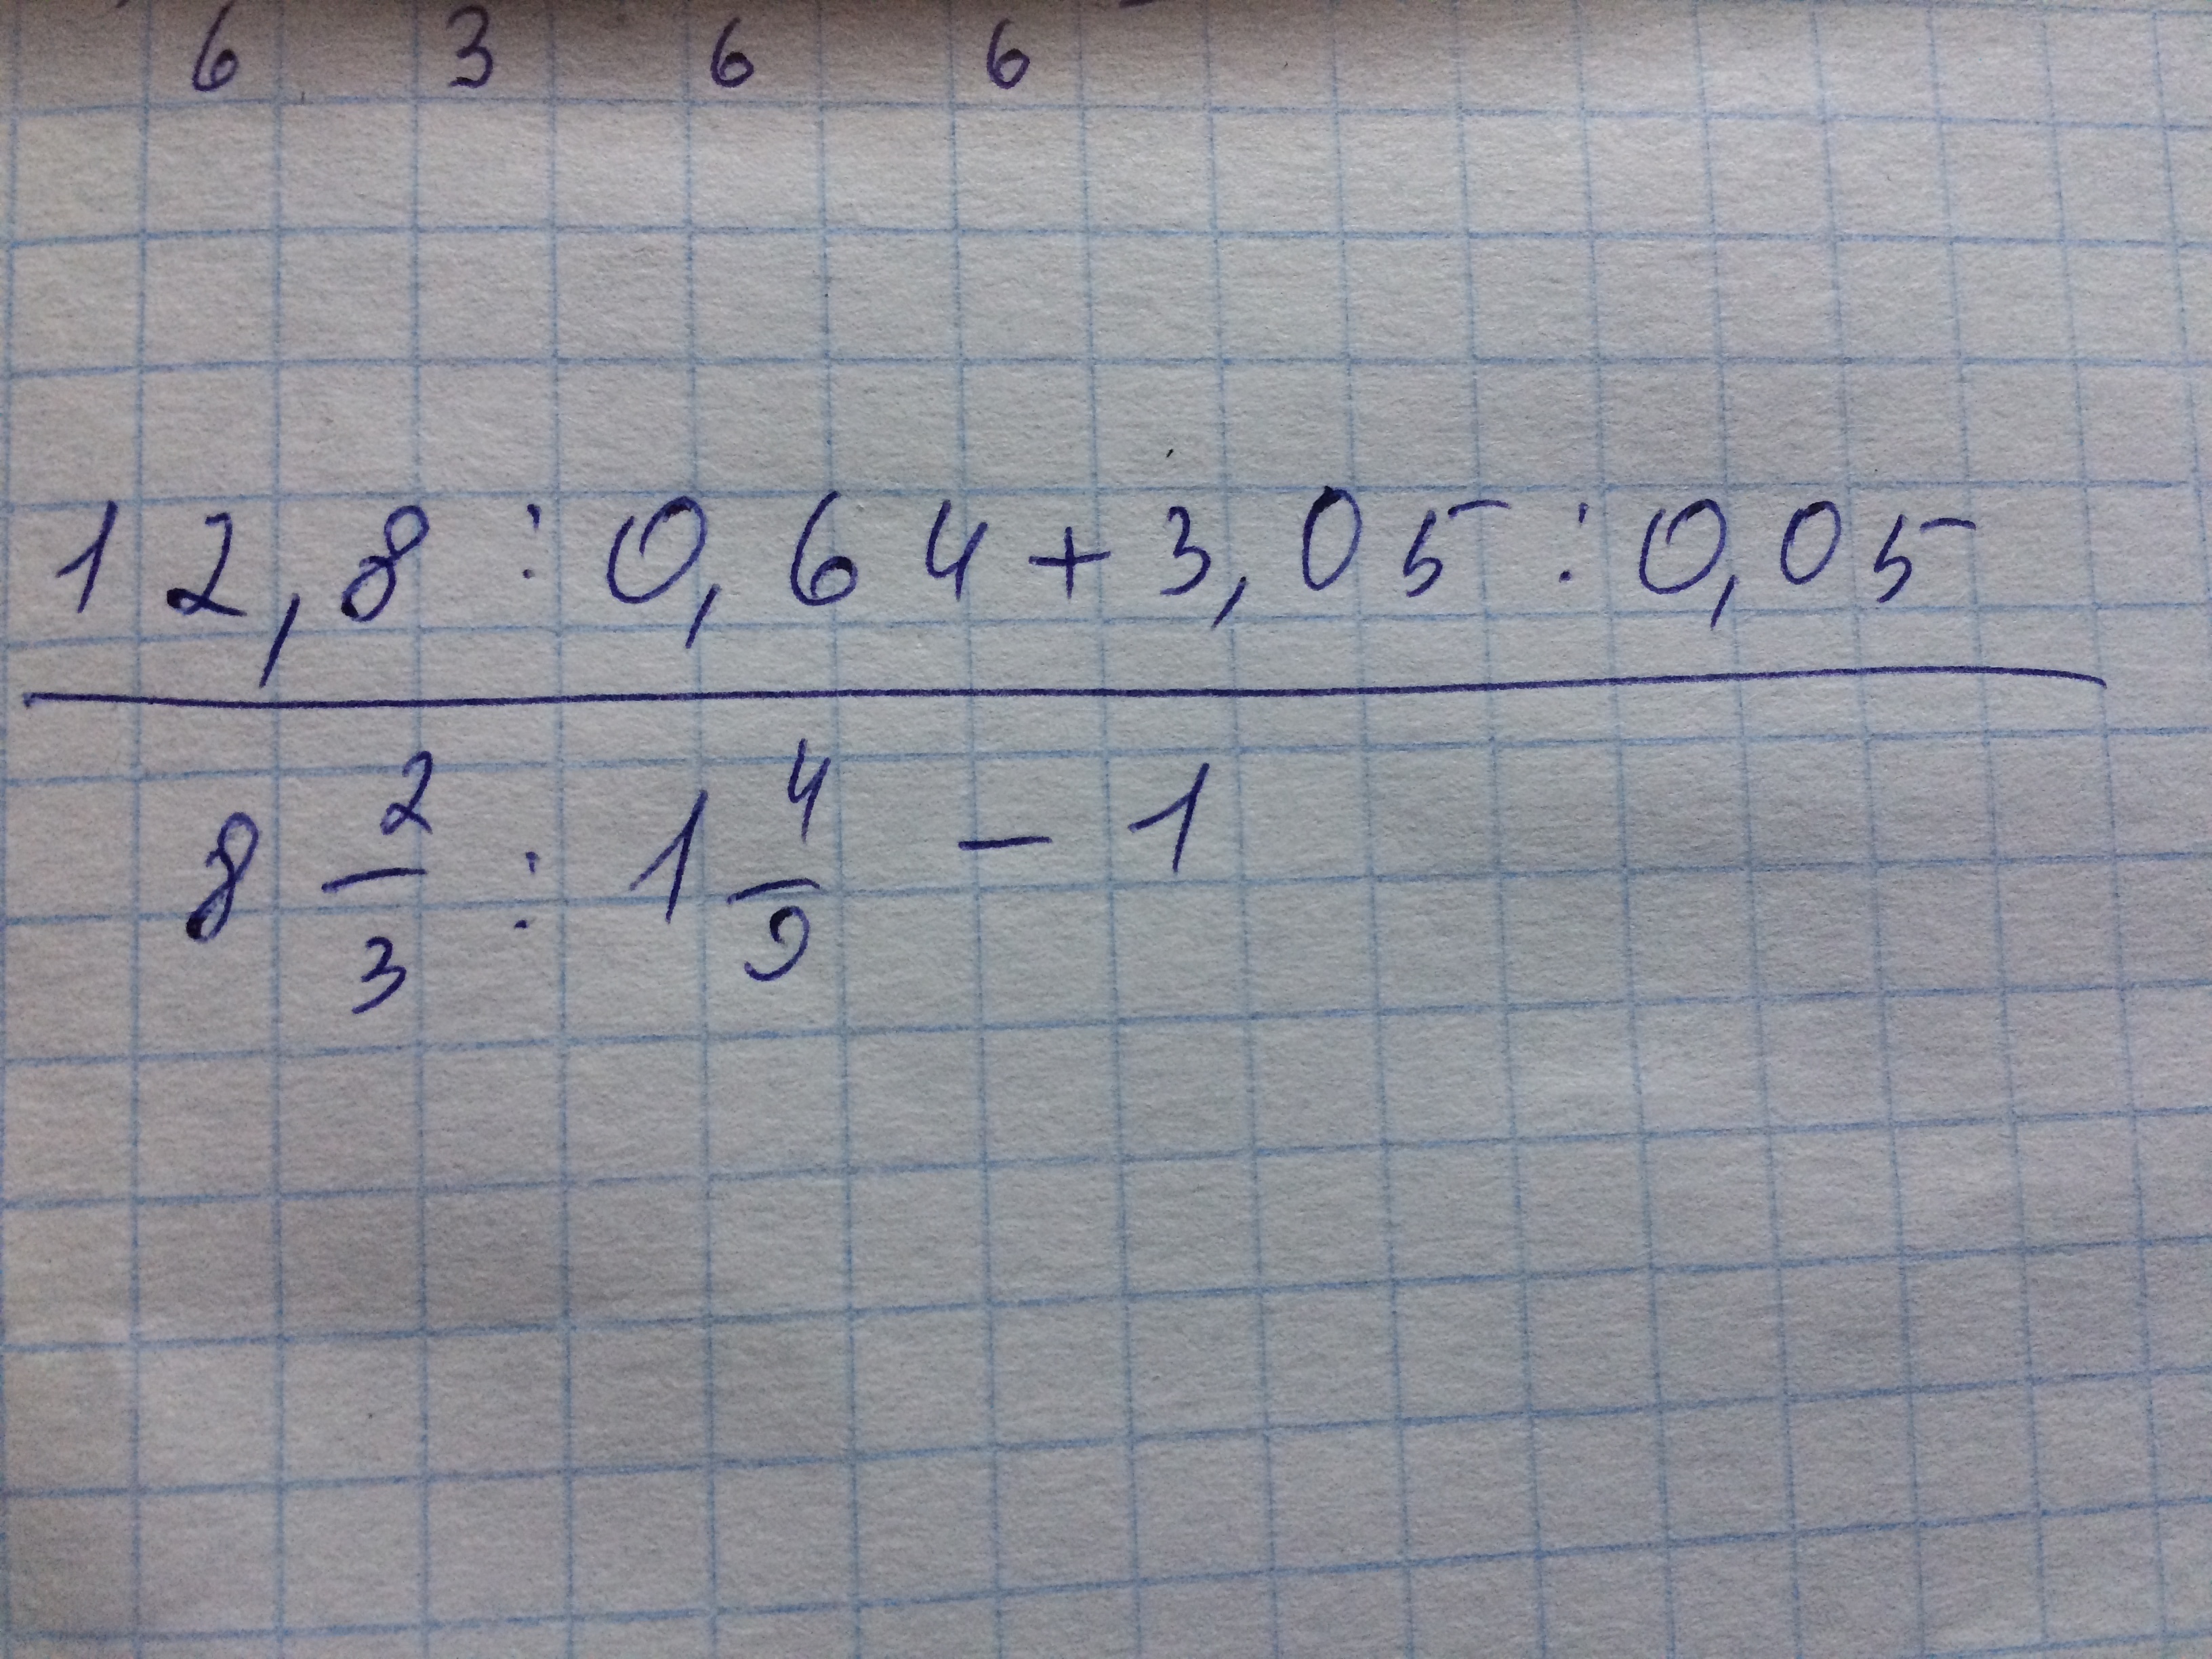 6 3 6 6
12,8 : 0,64 + 3,05 : 0,05
8 2/3 : 1 4/9 - 1